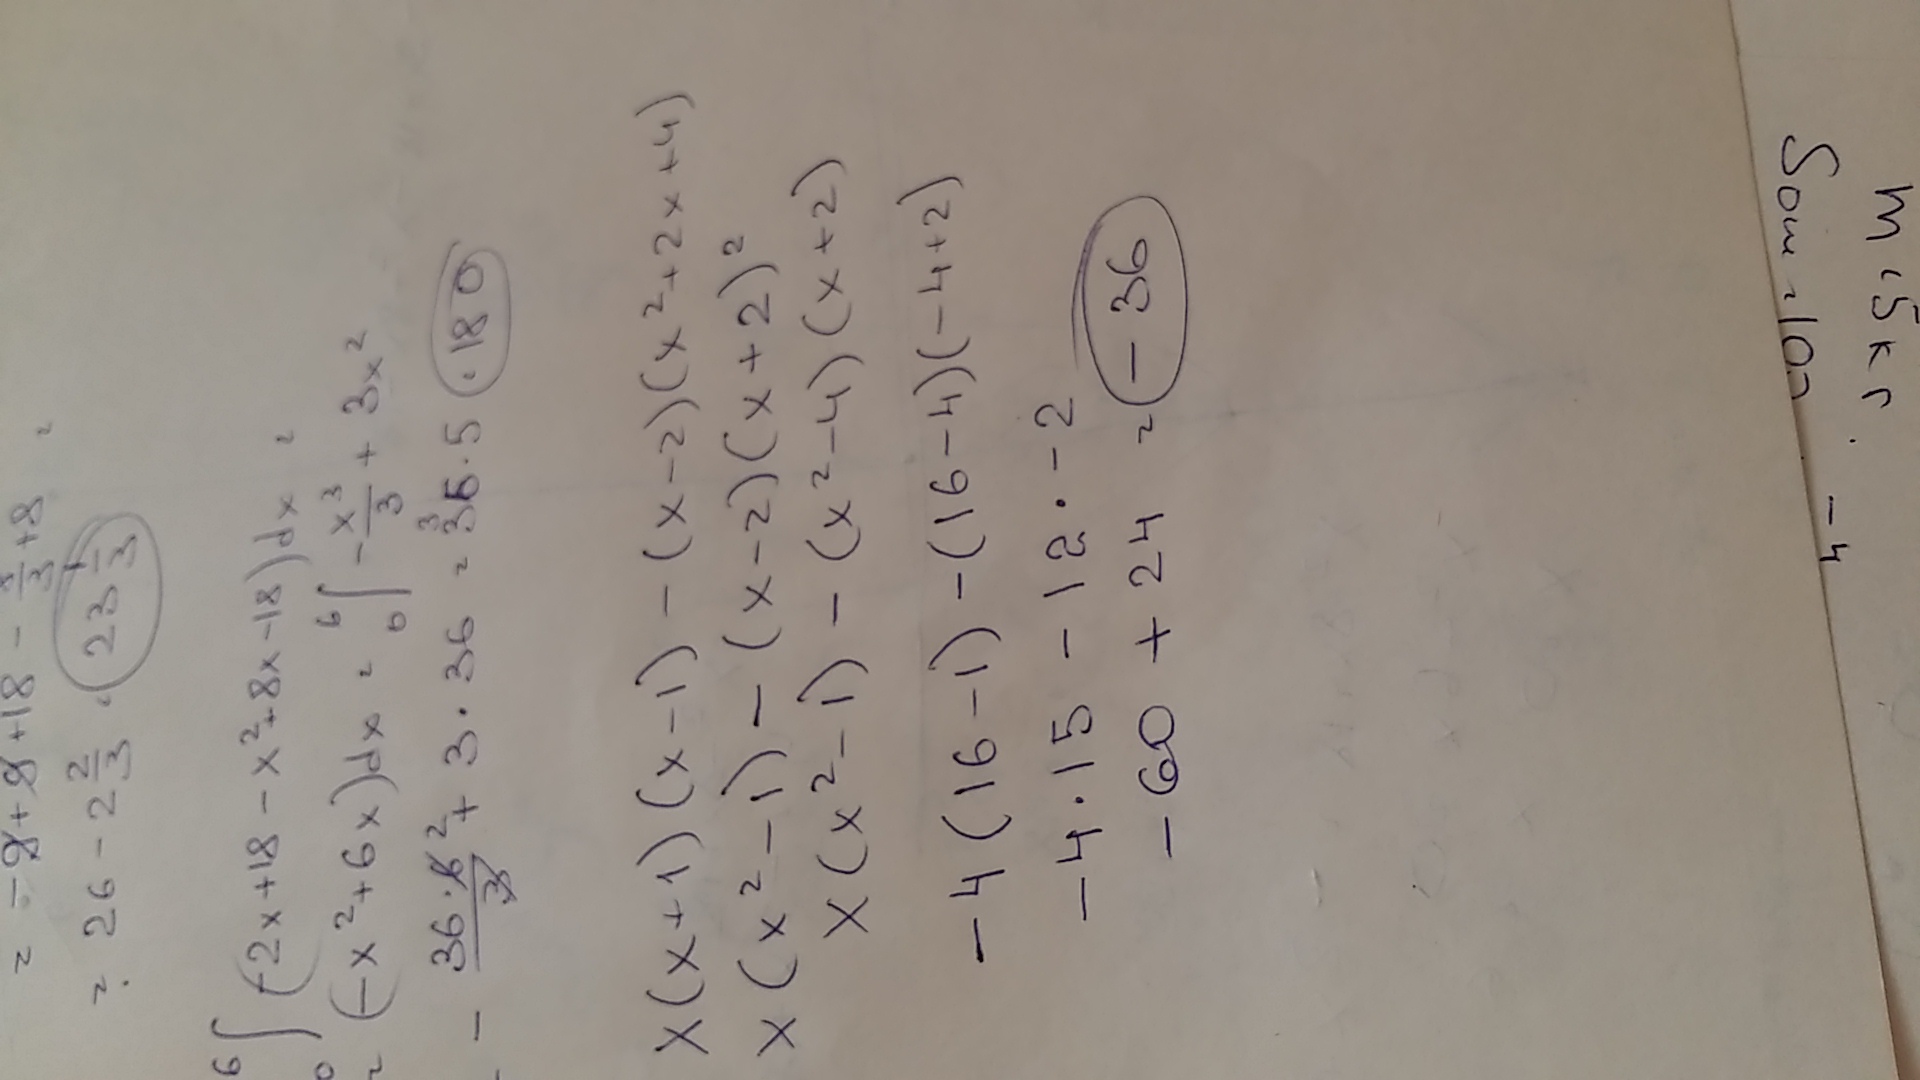 = -9 + 9 + 18 - 8/3 + 8 =
= 26 - 2 2/3 = 23 1/3
6 ∫ 0 (-2x+18 - x²+8x-18)dx =
= (-x²+6x)dx = 6 ∫ 0 -x³/3 + 3x²
- 36·6²/3 + 3·36 = 36·5 = 180
x(x+1)(x-1) - (x-2)(x²+2x+4)
x(x²-1) - (x-2)(x+2)²
x(x²-1) - (x²-4)(x+2)
-4(16-1) - (16-4)(-4+2)
-4·15 - 12·-2
-60 + 24 = -36